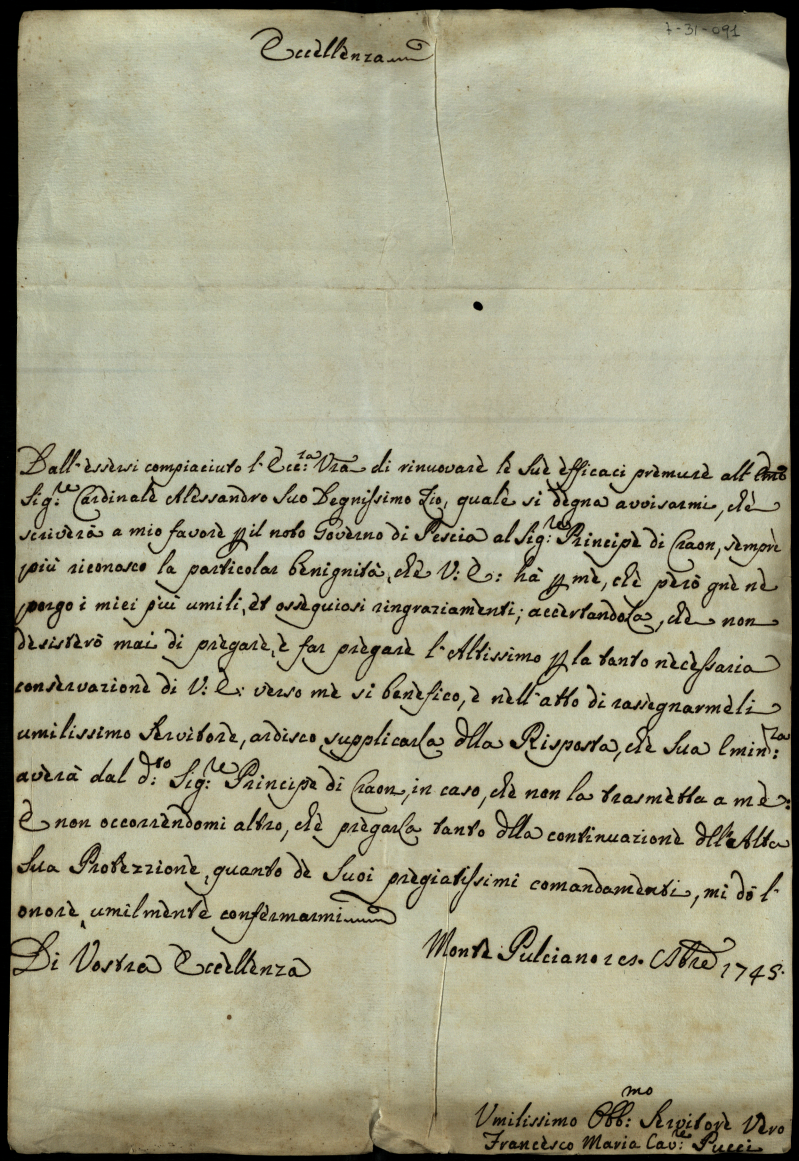 7-31-091
Eccellenza
Dall'essersi compiaciuto l'Ecc:ra Vra di rinuovare le sue efficaci premure all'Emo
Sig:re Cardinale Alessandro Suo Degnissimo Zio, quale si degna avvisarmi, che
scriverà a mio favore p il noto Governo di Pescia al Sig:re Principe di Craon, sempre
più riconosco la particolar benignità, che V: E: hà p me, che però gne ne
porgo i miei più umili, et ossequiosi ringraziamenti; accertandola, che non
desisterò mai di pregare, e far pregare l'Altissimo p la tanto necessaria
conservazione di V: E: verso me si benefico, e nell'atto di rassegnarmeli
umilissimo Servitore, ardisco supplicarla dlla Risposta, che Sua Emin:za
averà dal d:to Sig:re Principe di Craon, in caso, che non la trasmetta a me:
E non occorrendomi altro, che pregarla tanto dlla continuazione dell'Alta
Sua Protezzione, quanto de Suoi pregiatissimi comandamenti, mi dò l'
onore umilmente confermarmi
Di Vostra Eccellenza Monte Pulciano 1745.
Umilissimo Obb:mo Servitore Vero
Francesco Maria Cav:re Pucci